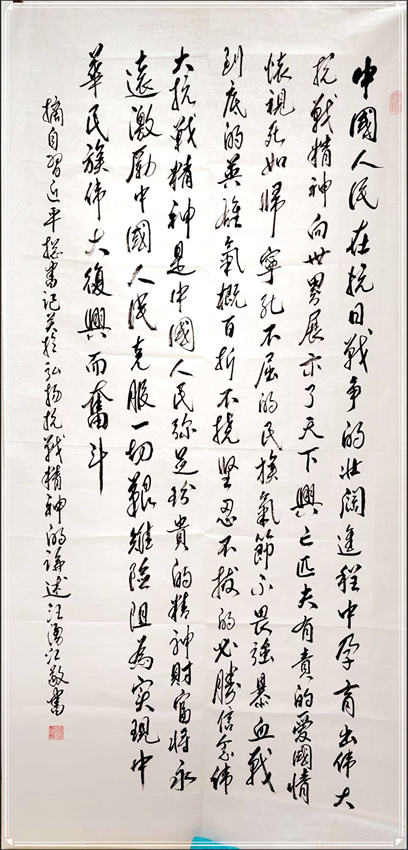 中國人民在抗日戰争的壮阔進程中孕育出伟大
抗戰精神向世界展示了天下興亡匹夫有責的愛國情
懷視死如歸寧死不屈的民族氣節不畏強暴血戰
到底的英雄氣概百折不撓坚忍不拔的必勝信念伟
大抗戰精神是中國人民弥足珍貴的精神財富将永
遠激勵中國人民克服一切艱難險阻為实現中
華民族伟大復興而奮斗
摘自習近平總書记关於弘扬抗戰精神的论述汪勇江敬書